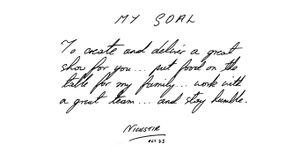 MY GOAL
To create and deliver a great
show for you... put food on the
table for my family... work with
a great team... and stay humble.